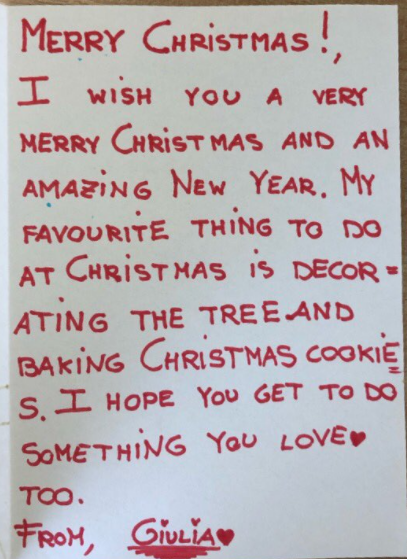 MERRY CHRISTMAS!,
I WISH YOU A VERY
MERRY CHRISTMAS AND AN
AMAZING NEW YEAR. MY
FAVOURITE THING TO DO
AT CHRISTMAS IS DECOR=
ATING THE TREE AND
BAKING CHRISTMAS COOKIE=
S. I HOPE YOU GET TO DO
SOMETHING YOU LOVE♥
TOO.
FROM, GIULIA♥